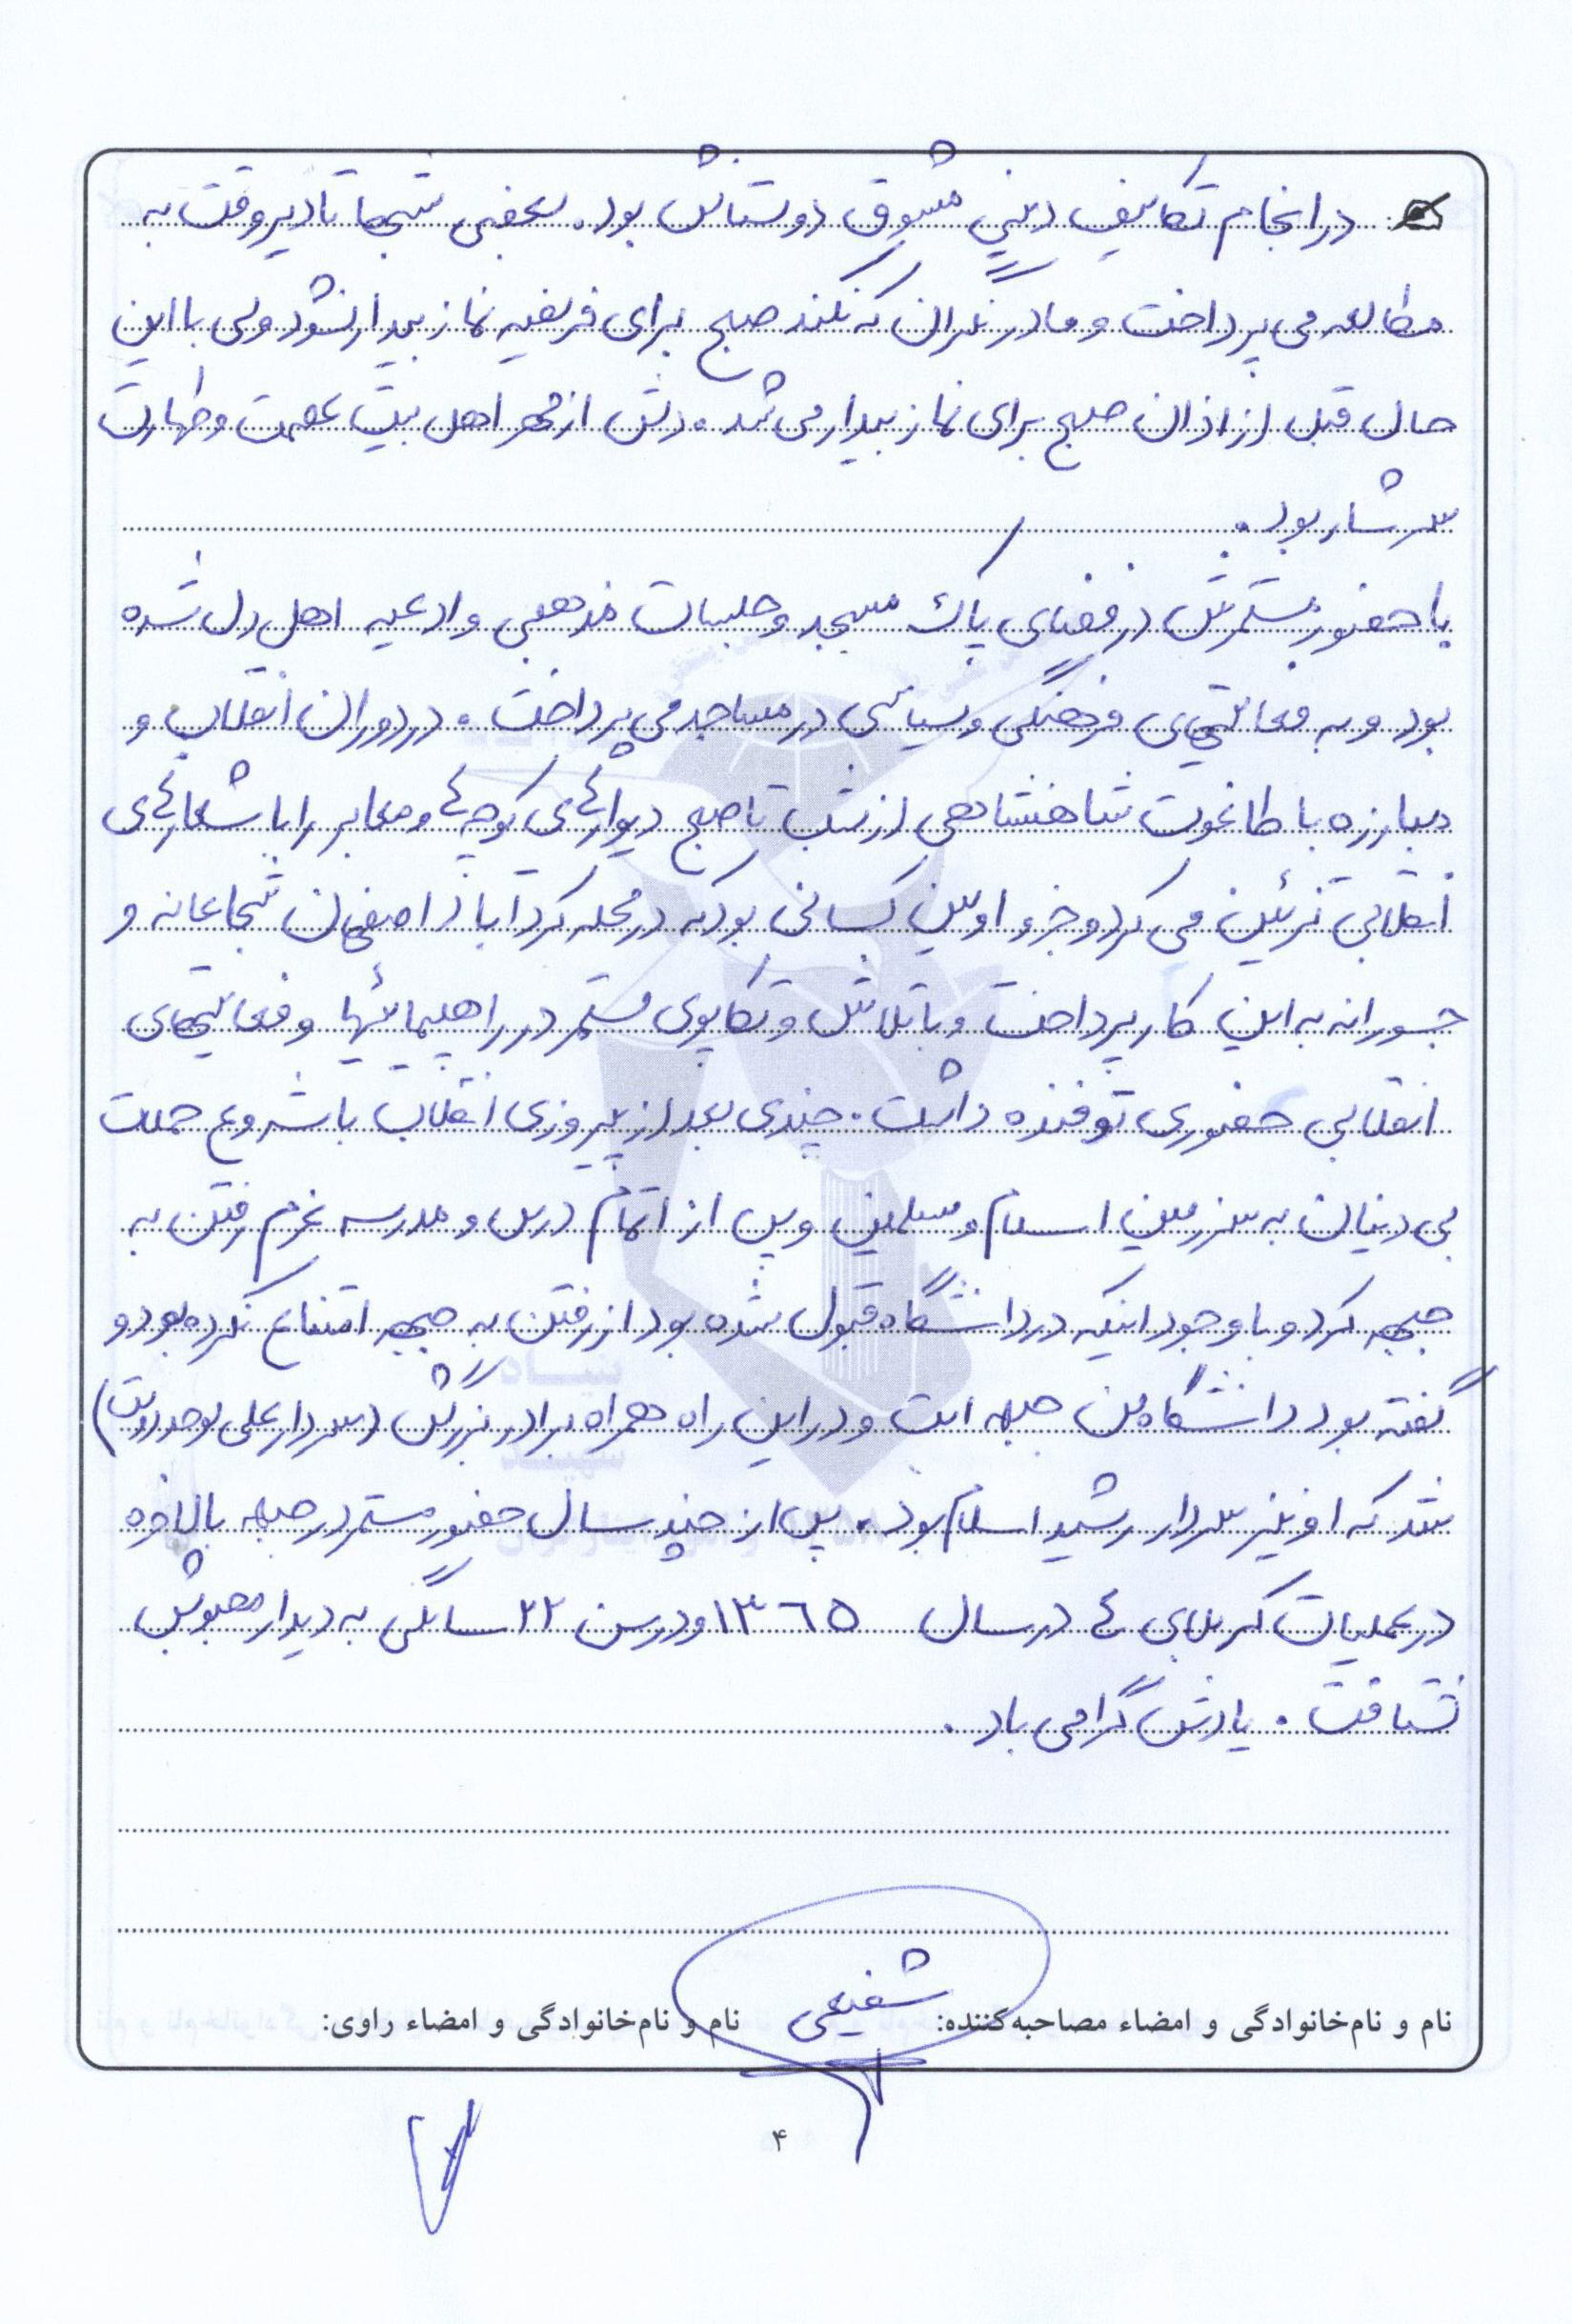 در انجام تکالیف دینی مشوق دوستانش بود. بعضی شبها تا دیر وقت به
مطالعه می پرداخت و مادر نگران که نکند صبح برای فریضه نماز بیدار نشود ولی با این
حال قبل از اذان صبح برای نماز بیدار می شد. دلش از مهر اهل بیت عصمت و طهارت
سرشار بود.
با حضور مستمرش در فضای پاک مسجد و جلسات مذهبی و ادعیه اهل دل شده
بود و به فعالیتهای فرهنگی و سیاسی در مساجد می پرداخت. در دوران انقلاب و
مبارزه با طاغوت شاهنشاهی از شب تا صبح دیوارهای کوچه ها و معابر را با شعارهای
انقلابی تزئین می کرد و جزو اولین کسانی بود که در محله کردآباد اصفهان شجاعانه و
جسورانه به این کار پرداخت و با تلاش و تکاپوی مستمر در راهپیمائیها و فعالیتهای
انقلابی حضوری توفنده داشت. چندی بعد از پیروزی انقلاب با شروع حملات
بی دینان به سرزمین اسلام و مسلمین و پس از اتمام درس و مدرسه عزم رفتن به
جبهه کرد و با وجود اینکه در دانشگاه قبول شده بود از رفتن به جبهه امتناع نکرده بود و
گفته بود دانشگاه من جبهه است و در این راه همراه برادر بزرگش (سردار علی
شد که او نیز سردار رشید اسلام بود. پس از چند سال حضور مستمر در جبهه بالاخره
در عملیات کربلای ٤ در سال ١٣٦٥ و در سن ٢٢ سالگی به دیدار معبودش
شتافت. یادش گرامی باد.
نام و نام‌خانوادگی و امضاء مصاحبه‌کننده: شفیعی نام و نام‌خانوادگی و امضاء راوی:
۴